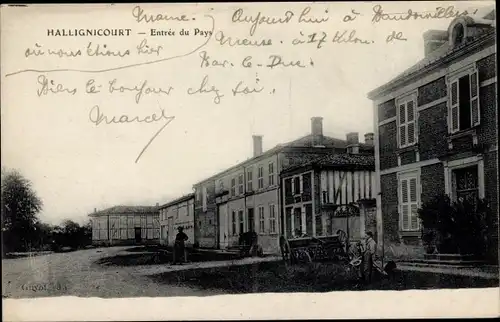 HALLIGNICOURT — Entrée du Pays
Marne. Aujourd'hui à Vandonvillers
où nous étions hier Meuse. à 17 Kilom. de
Bar. Le. Duc.
Biens le bonjour chez toi.
Marcel
Guyot éd.